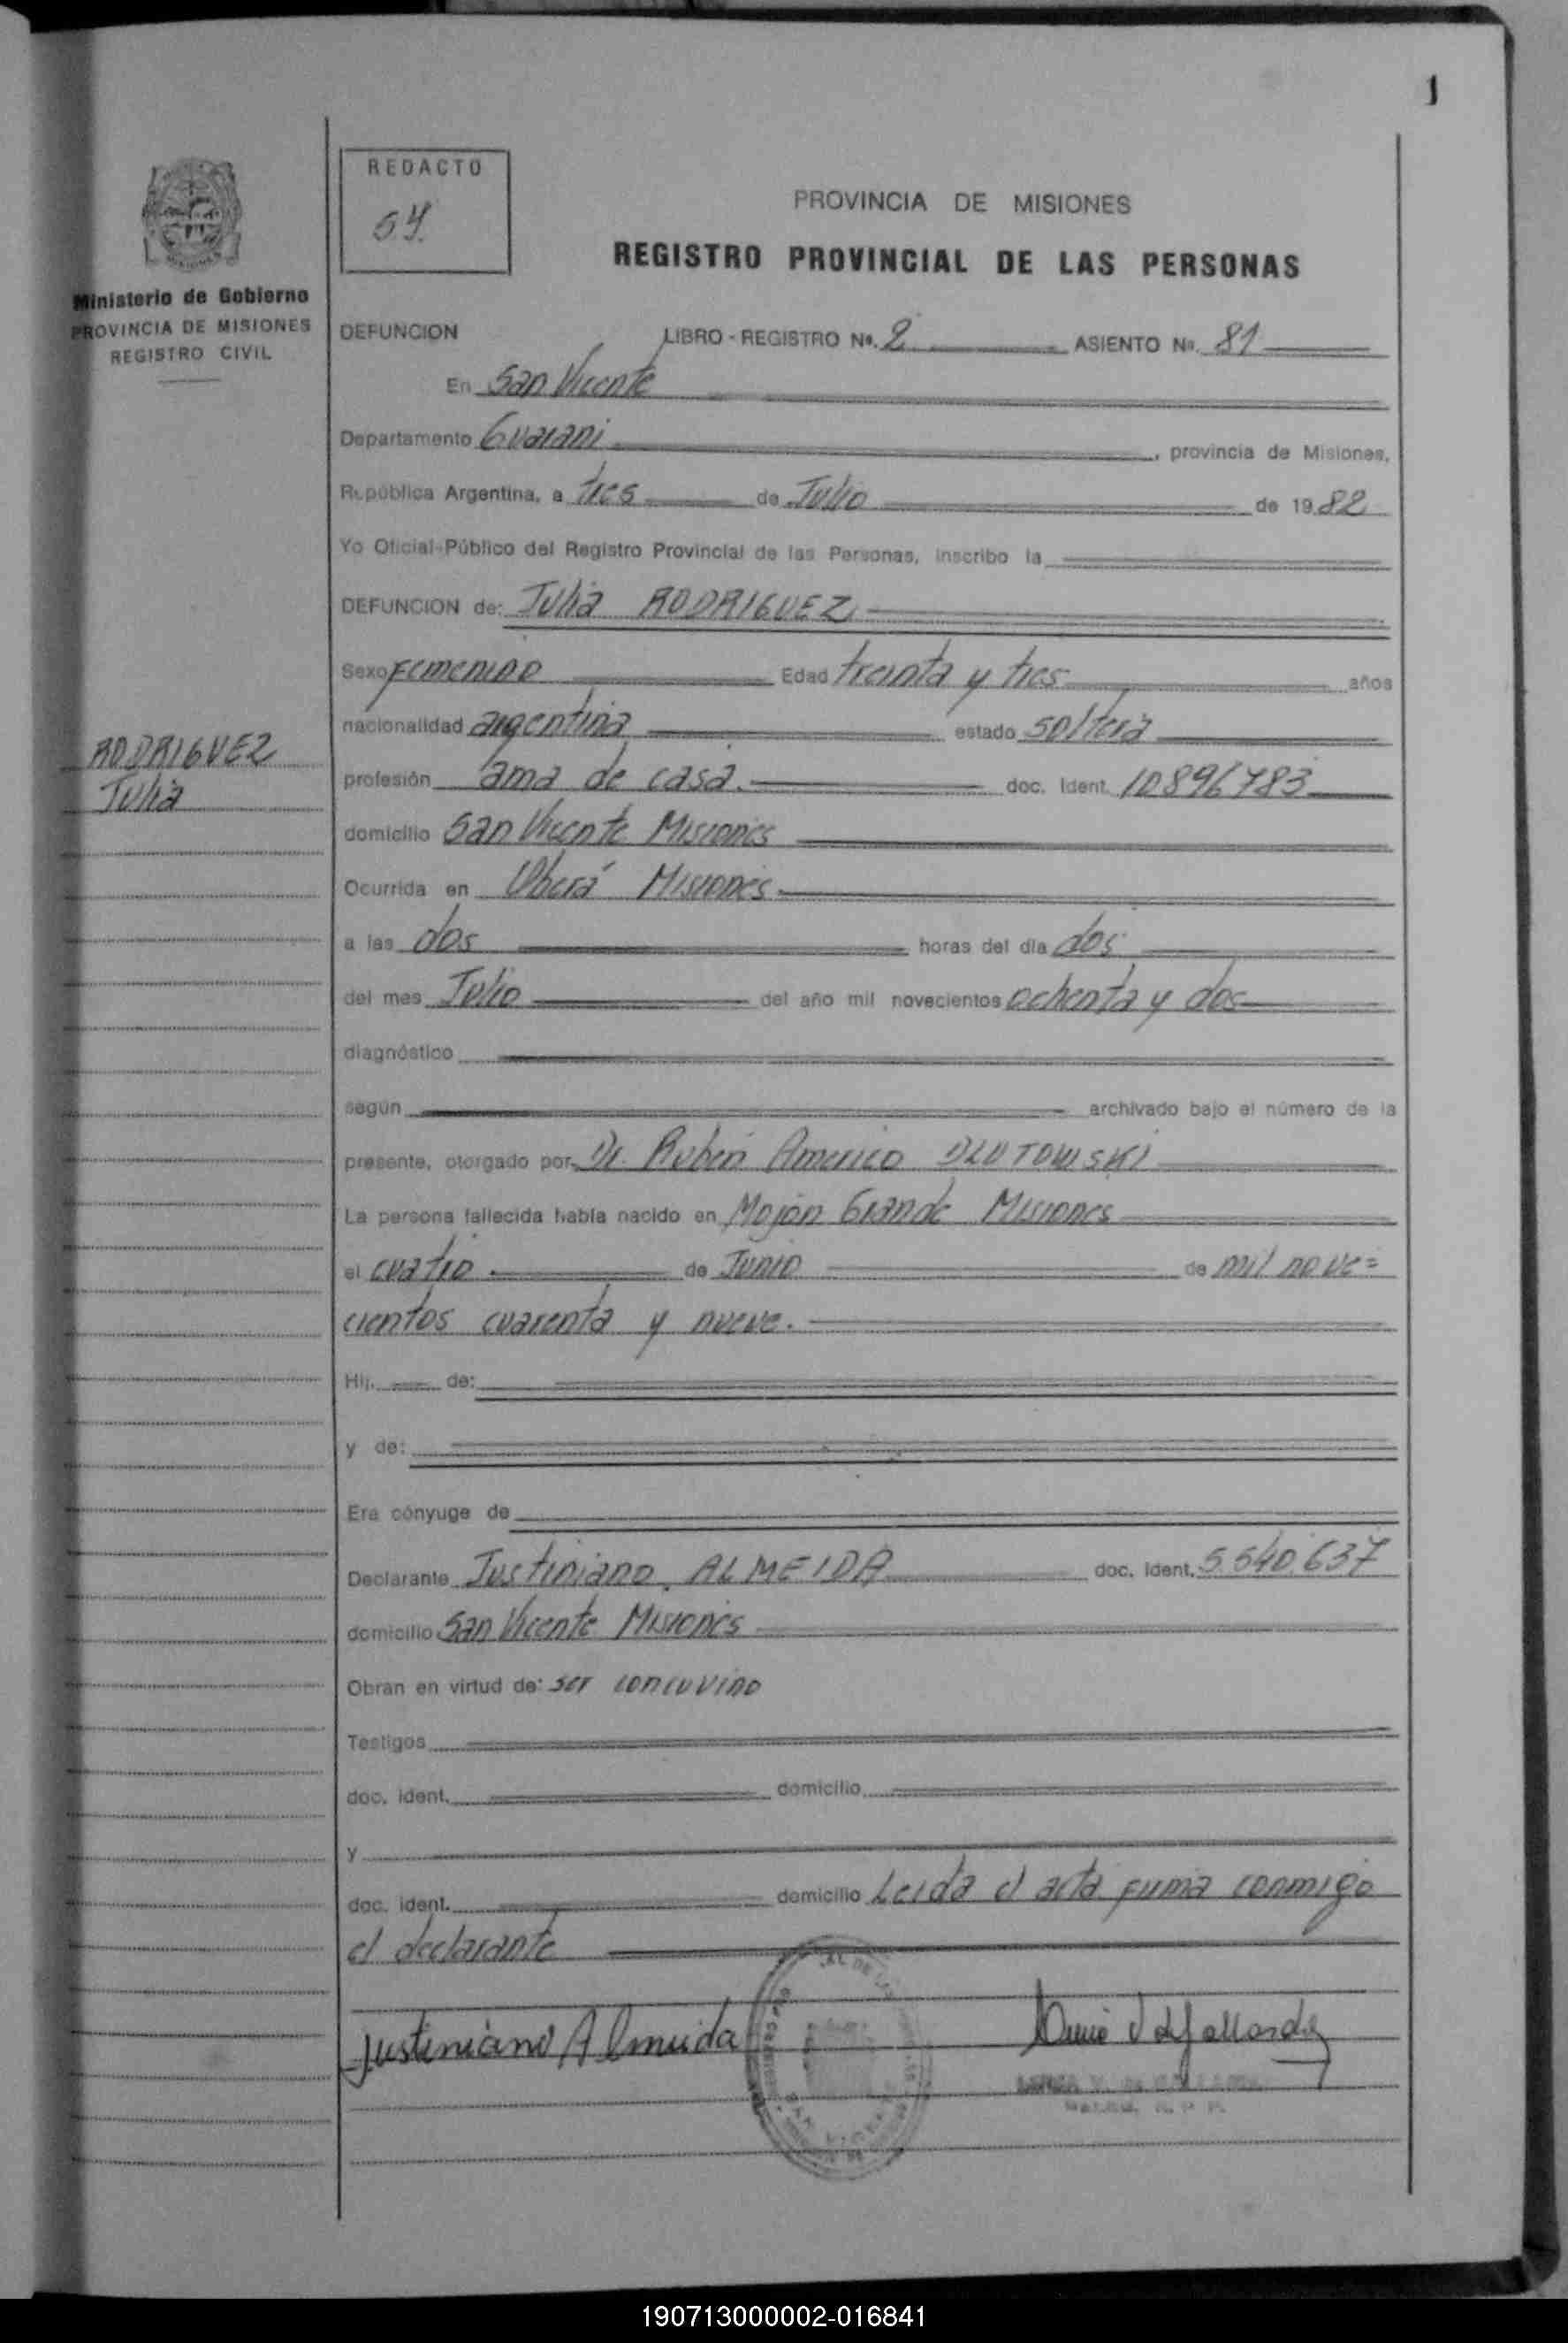 1
REDACTO
Ministerio de Gobierno
PROVINCIA DE MISIONES
REGISTRO CIVIL
PROVINCIA DE MISIONES
REGISTRO PROVINCIAL DE LAS PERSONAS
DEFUNCION LIBRO - REGISTRO No. 2 ASIENTO No. 81
En San Vicente
Departamento Guarani , provincia de Misiones,
República Argentina, a tres de Julio de 1982
Yo Oficial Público del Registro Provincial de las Personas, inscribo la
DEFUNCION de: Julia RODRIGUEZ
Sexo Femenino Edad treinta y tres años
nacionalidad argentina estado soltera
RODRIGUEZ
Julia
profesión ama de casa. doc. Ident. 10896783
domicilio San Vicente Misiones
Ocurrida en Oberá Misiones
a las dos horas del día dos
del mes Julio del año mil novecientos ochenta y dos
diagnóstico
según archivado bajo el número de la
presente, otorgado por Dr. Ruben Americo DLUTOWSKI
La persona fallecida había nacido en Mojon Grande Misiones
el cuatro de Junio de mil nove=
cientos cuarenta y nueve.
Hij. de:
y de:
Era cónyuge de
Declarante Justiniano ALMEIDA doc. Ident. 5.540.637
domicilio San Vicente Misiones
Obran en virtud de: ser concuvino
Testigos
doc. ident. domicilio
y
doc. ident. domicilio Leida el acta firma conmigo
el declarante
Justiniano Almeida
190713000002-016841